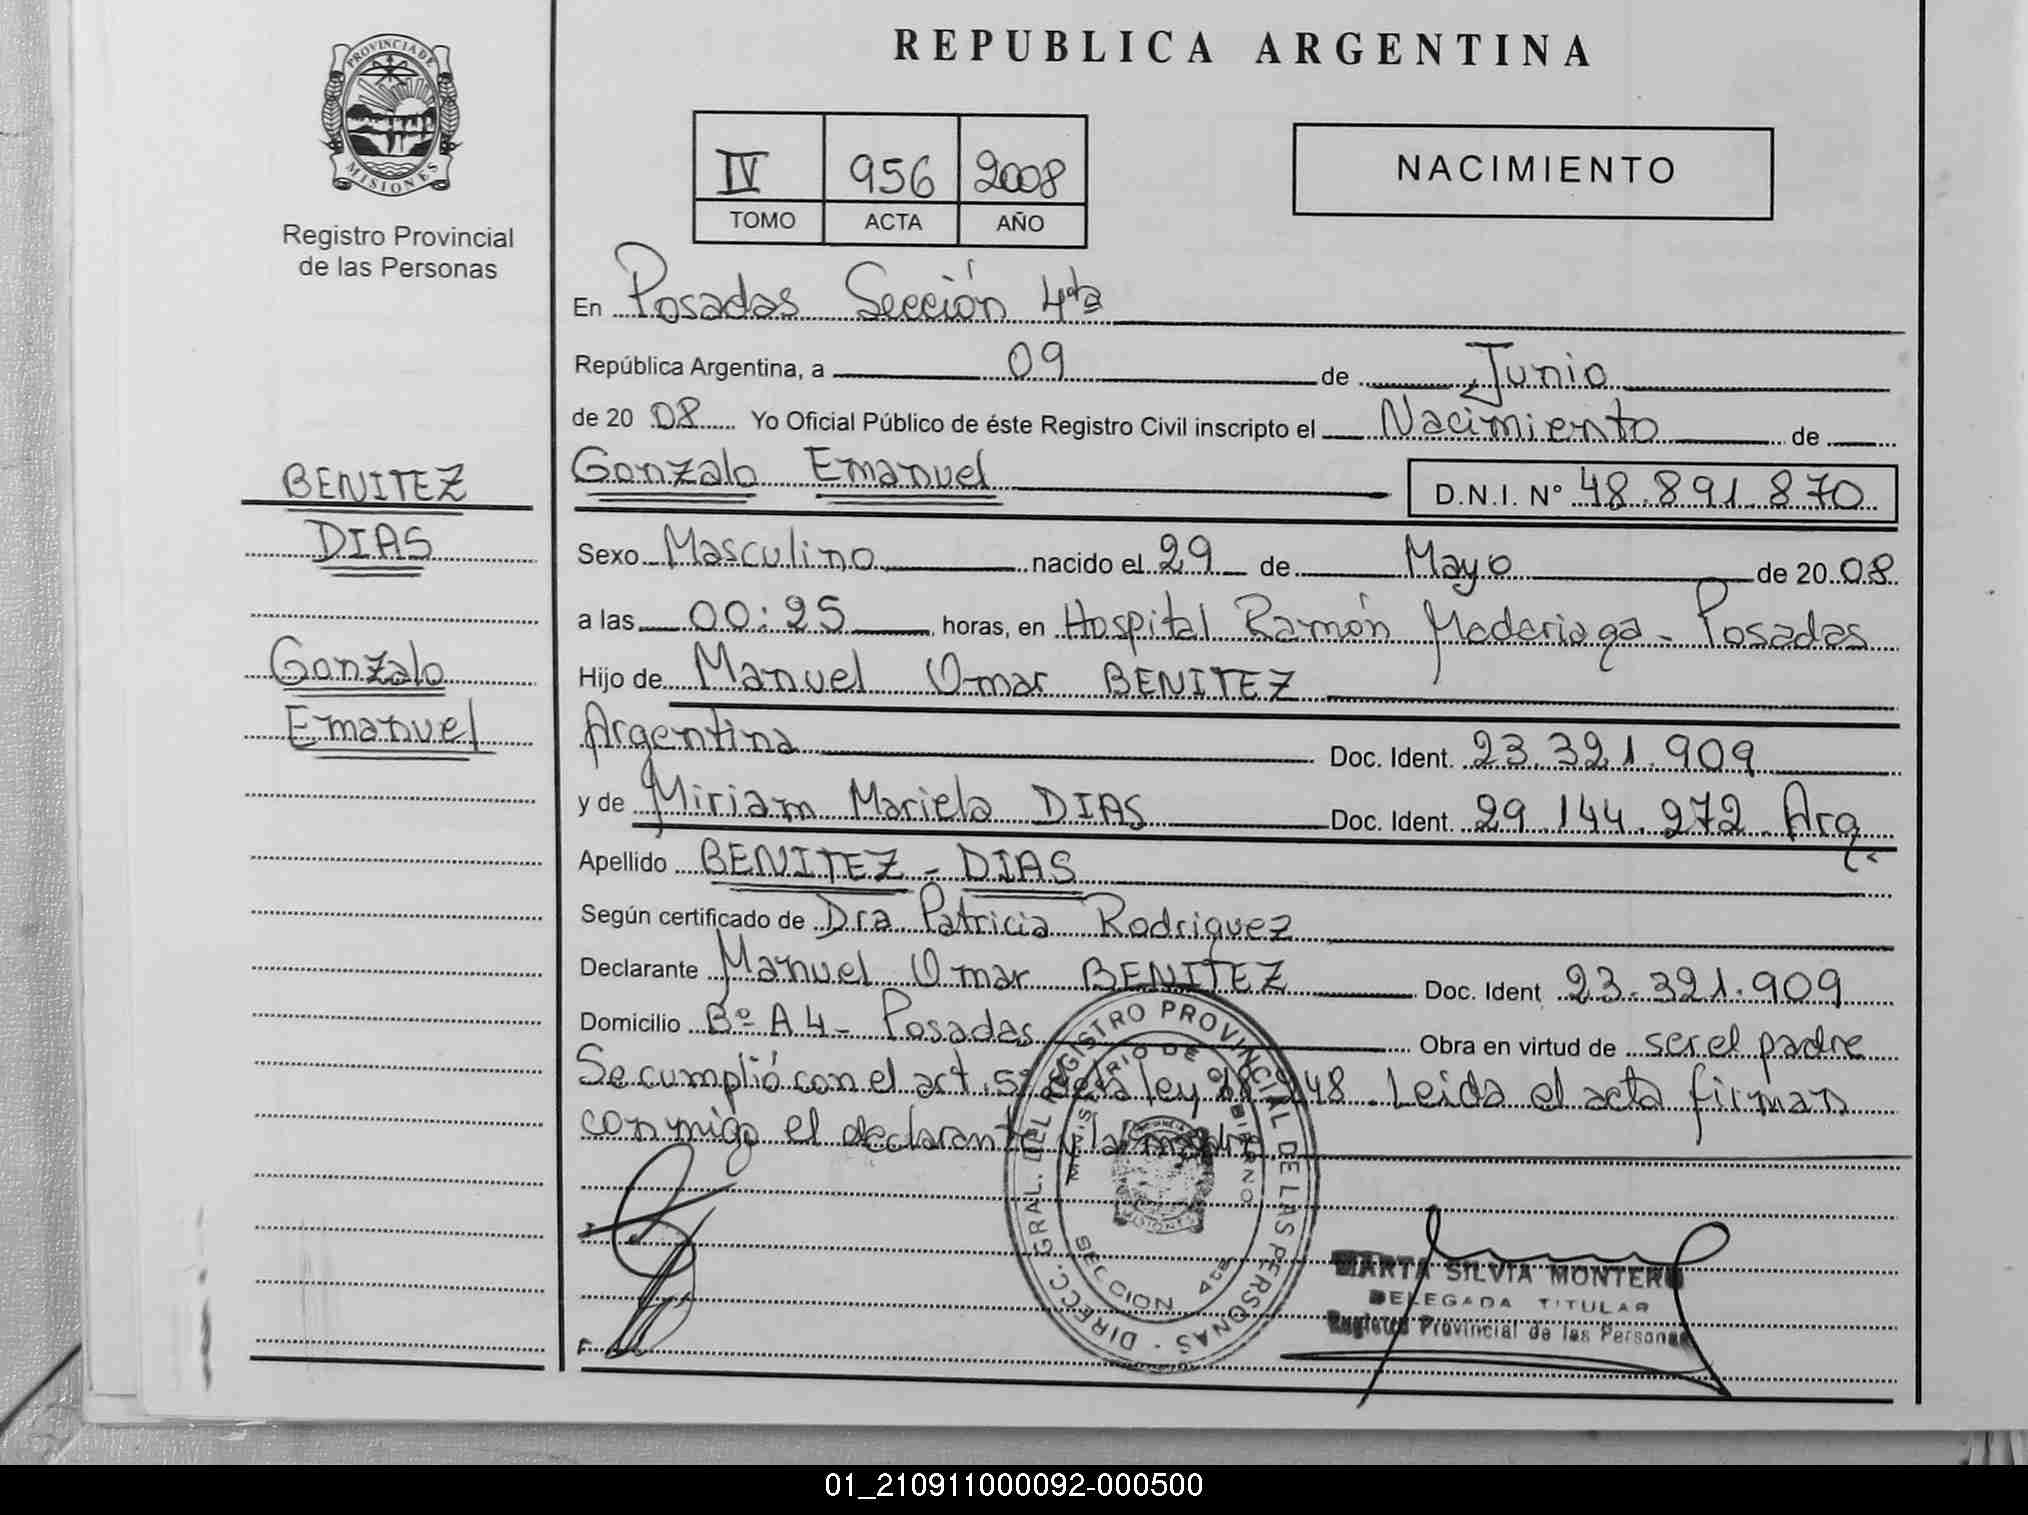 REPUBLICA ARGENTINA
PROVINCIA DE MISIONES
Registro Provincial
de las Personas
IV 956 2008
TOMO ACTA AÑO
NACIMIENTO
En Posadas Sección 4ta
República Argentina, a 09 de Junio
de 2008 Yo Oficial Público de éste Registro Civil inscripto el Nacimiento de
Gonzalo Emanuel D.N.I. Nº 48.891.870
BENITEZ
DIAS
Gonzalo
Emanuel
Sexo Masculino nacido el 29 de Mayo de 2008
a las 00:25 horas, en Hospital Ramón Madariaga - Posadas
Hijo de Manuel Omar BENITEZ
Argentina Doc. Ident. 23.321.909
y de Miriam Mariela DIAS Doc. Ident. 29.144.272 Arg
Apellido BENITEZ - DIAS
Según certificado de Dra Patricia Rodriguez
Declarante Manuel Omar BENITEZ Doc. Ident 23.321.909
Domicilio Bº A4 - Posadas Obra en virtud de ser el padre
Se cumplió con el art. 5º de la ley 18.248. Leida el acta firman
conmigo el declarante y la madre.
DIRECC. GRAL. DEL REGISTRO PROVINCIAL DE LAS PERSONAS
MINISTERIO DE GOBIERNO
MISIONES
SECCION 4ta
MARTA SILVIA MONTERO
DELEGADA TITULAR
Registro Provincial de las Personas
01_210911000092-000500